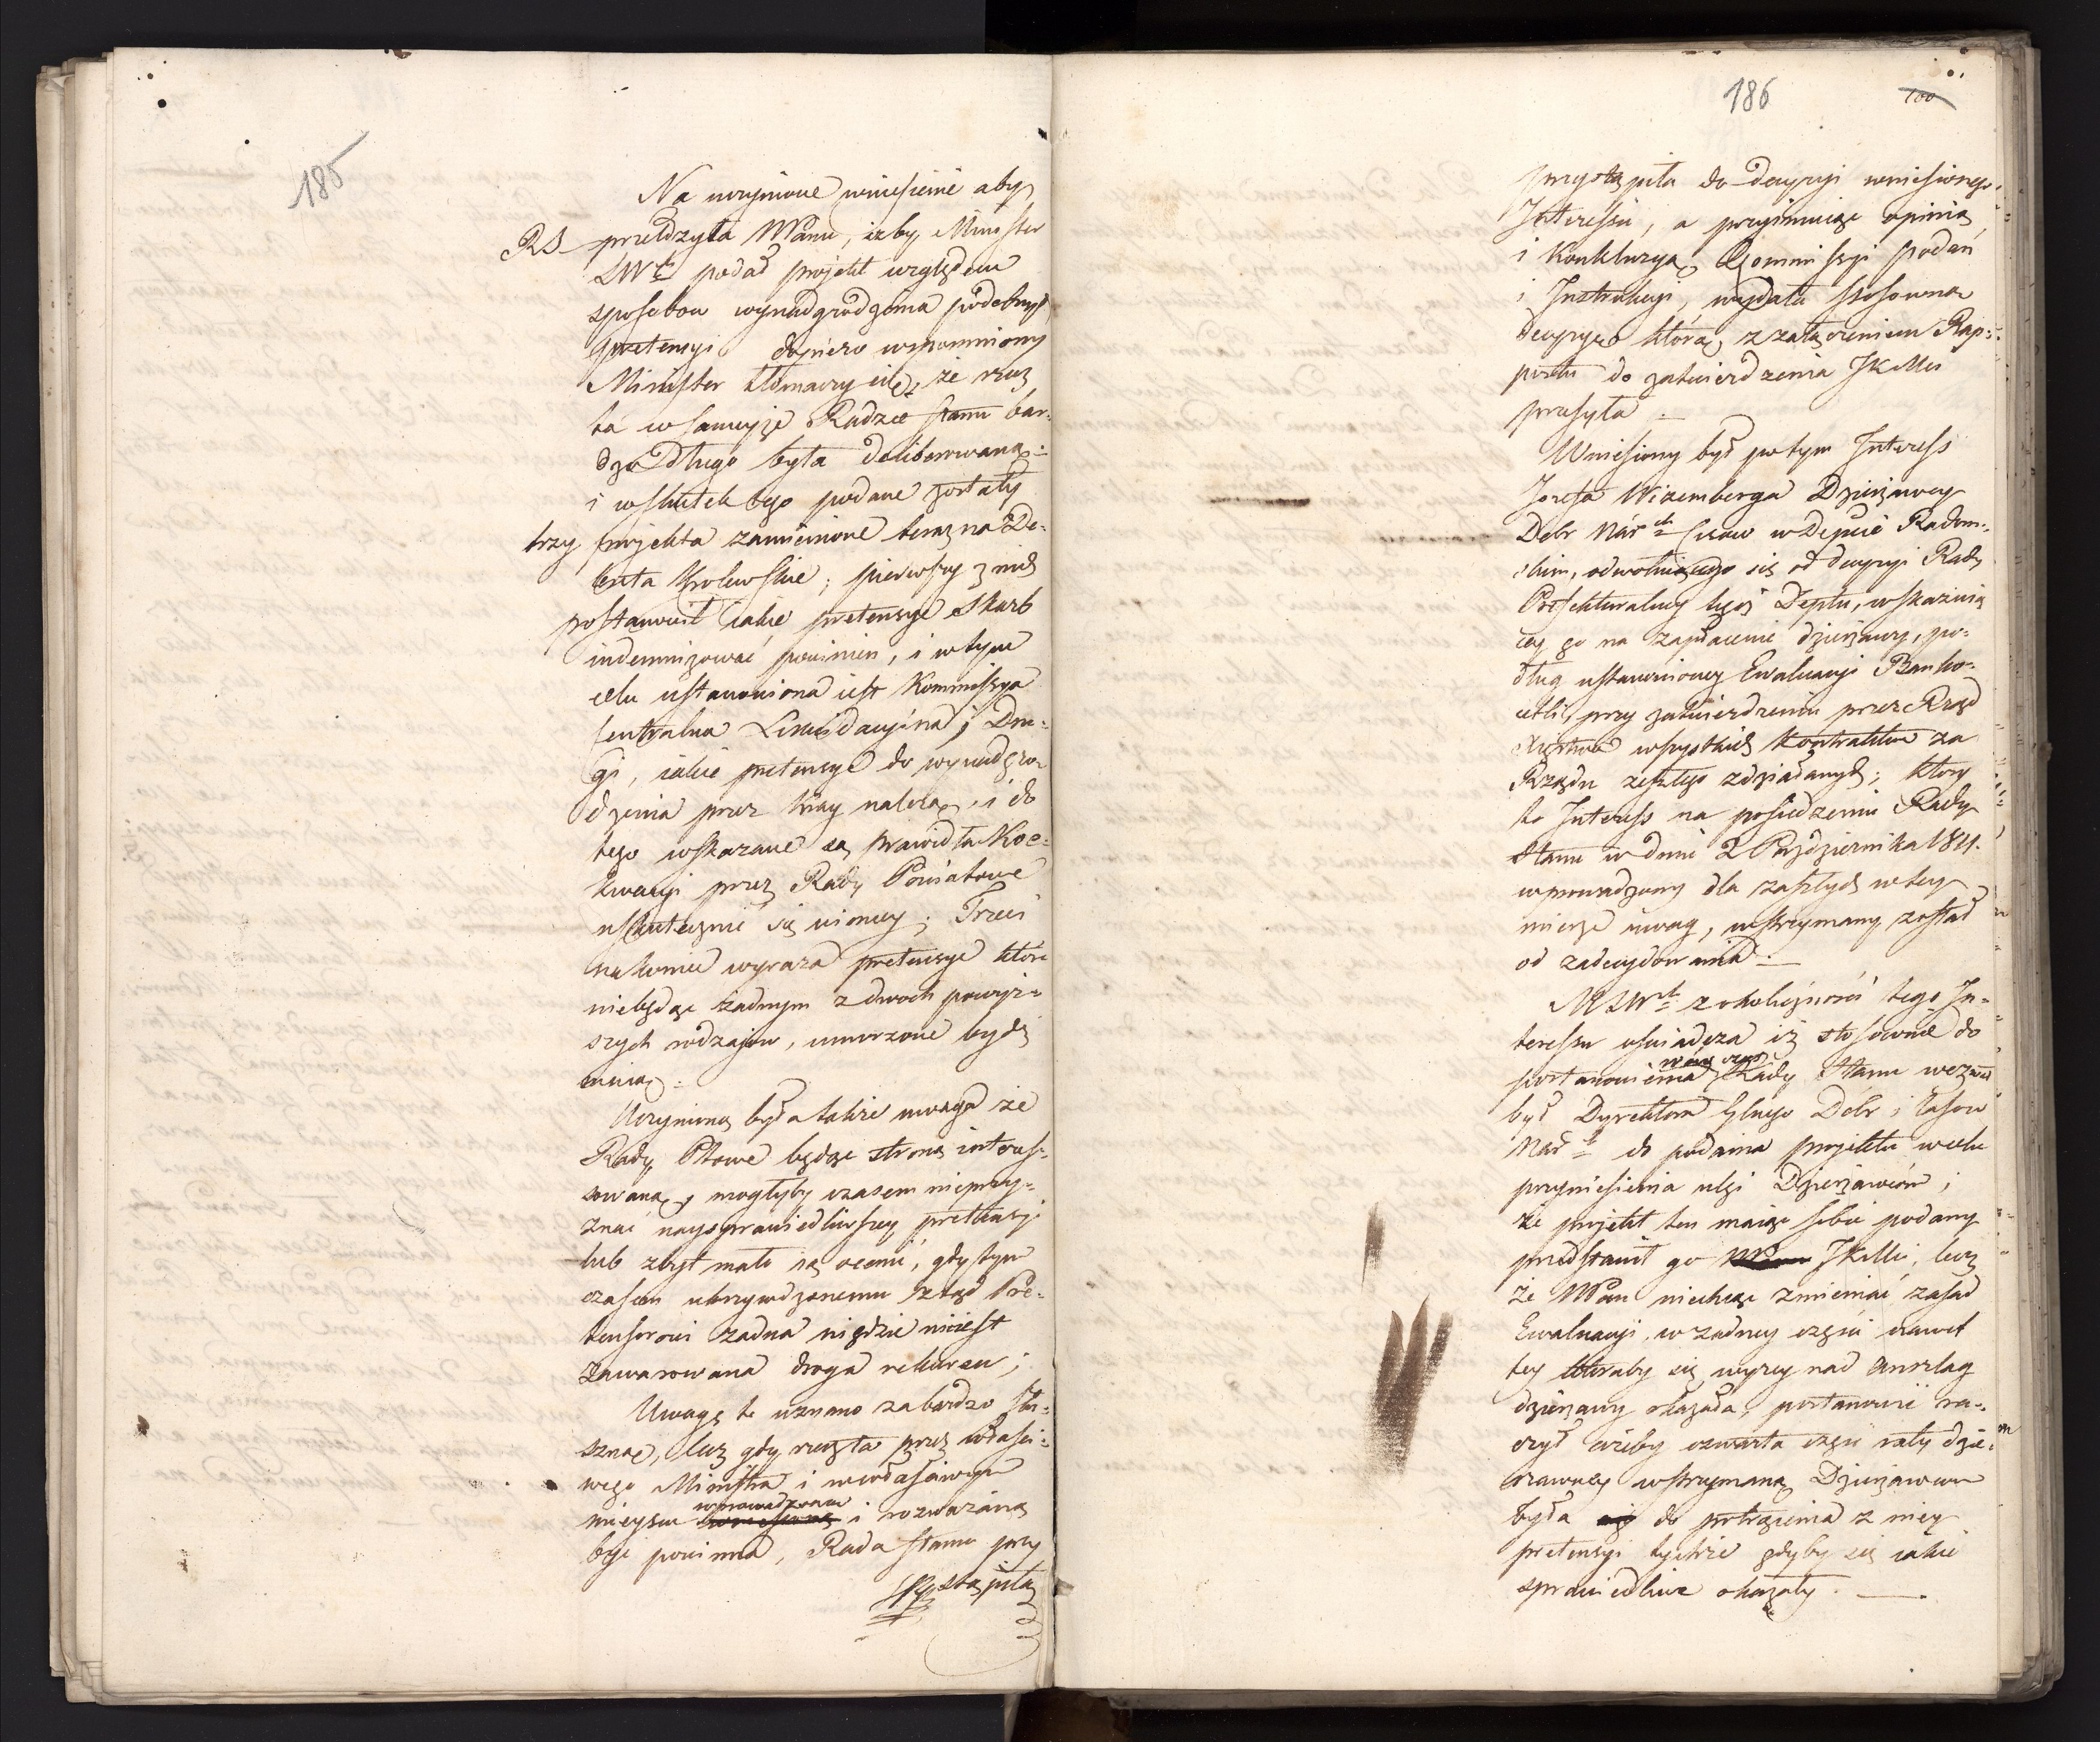 185
Na uczynione wniesienie aby
RS przełożyła NPanu, iżby Minister
SWch podał projekt względem
sposobow wynadgrodzenia podobnych
pretensyi dopiero wspomniony
Minister tłomaczy się, że rzecz
ta w samejże Radzie stanu bar-
dzo długo była deliberowaną
i wskutek tego podane zostały
trzy projekta zamienione teraz na De-
kreta Krolewskie; pierwszy z nich
postanowił jakie pretensye Skarb
indemnizować powinien, i w tym
celu ustanowiona iest Kommissya
Centralna Likwidacyina; Dru-
gi, iakie pretensye do wynadgro-
dzenia przez kray należą, i do
tego wskazane są prawidła Koe-
kwacyi przez Rady Powiatowe
uskutecznić się maiącey; Trzeci
nakoniec wyraża pretensye ktore
niebędąc żadnym z dwoch powyż-
szych rodzaiow, umorzone bydź
maią.
Uczynioną była także uwaga że
Rady Ptowe będąc stroną interes-
sowaną, mogłyby czasem nieprzy-
znać naysprawiedliwszey pretensyi
lub zbyt mało ią ocenić, gdy tym
czasem ukrzywdzonemu ztąd Pre-
tensorowi żadna nigdzie nieiest
zawarowana droga rekursu;
Uwagę tę uznano za bardzo słu-
szną, lecz gdy rzecz ta przez właści-
wego Ministra i w właściwym
wprowadzana
mieyscu wniesioną i rozważaną
być powinna, Rada stanu przy
stąpiła
186
100
przystąpiła do decyzyi wniesionego
Interessu, a przyimuiąc opinią
i Konkluzyą Kommissyi Podań
i Instrukcyi, wydała stosowną
decyzyą którą z załączeniem Rap-
portu do zatwierdzenia JKMci
przesyła.
Wniesiony był potym Interess
Jozefa Wizemberga Dzierżawcy
Dobr Narch w Depcie Radom-
skim, odwołuiącego się od decyzyi Rady
Prefekturalney tegoż Deptu, wskazuią
cey go na zapłacenie dzierżawy, po-
dług ustanowioney Ewaluacyi Banko-
cetli, przy zatwierdzeniu przez Rząd
wszystkich Kontraktow za
Rządu zeszłego zdziałanych; ktory
to Interess na posiedzeniu Rady
Stanu w dniu 2 Października 1811.
wprowadzony dla zaszłych w tey
mierze uwag, wstrzymany został
od zadecydowania.
MSWch z okoliczności tego In-
teressu oświadcza iż stosownie do
w ów czas
postanowienia Rady Stanu wezwał
był Dyrektora Glnego Dobr i Lasow
Narch do podania projektu wcelu
przyniesienia ulgi Dzierżawcom;
że projekt ten maiąc sobie podany
przedstawił go JKMci, lecz
że NPan niechcąc zmieniać zasad
Ewaluacyi, w żadney części nawet
tey ktoraby się wyżey nad Anszlag
dzierżawy okazała, postanowić ra-
czył ażeby czwarta część raty dzie-
rżawney wstrzymaną Dzierżawcom
była do potrącenia z niey
pretensyi tychże gdyby się iakie
sprawiedliwe okazały.